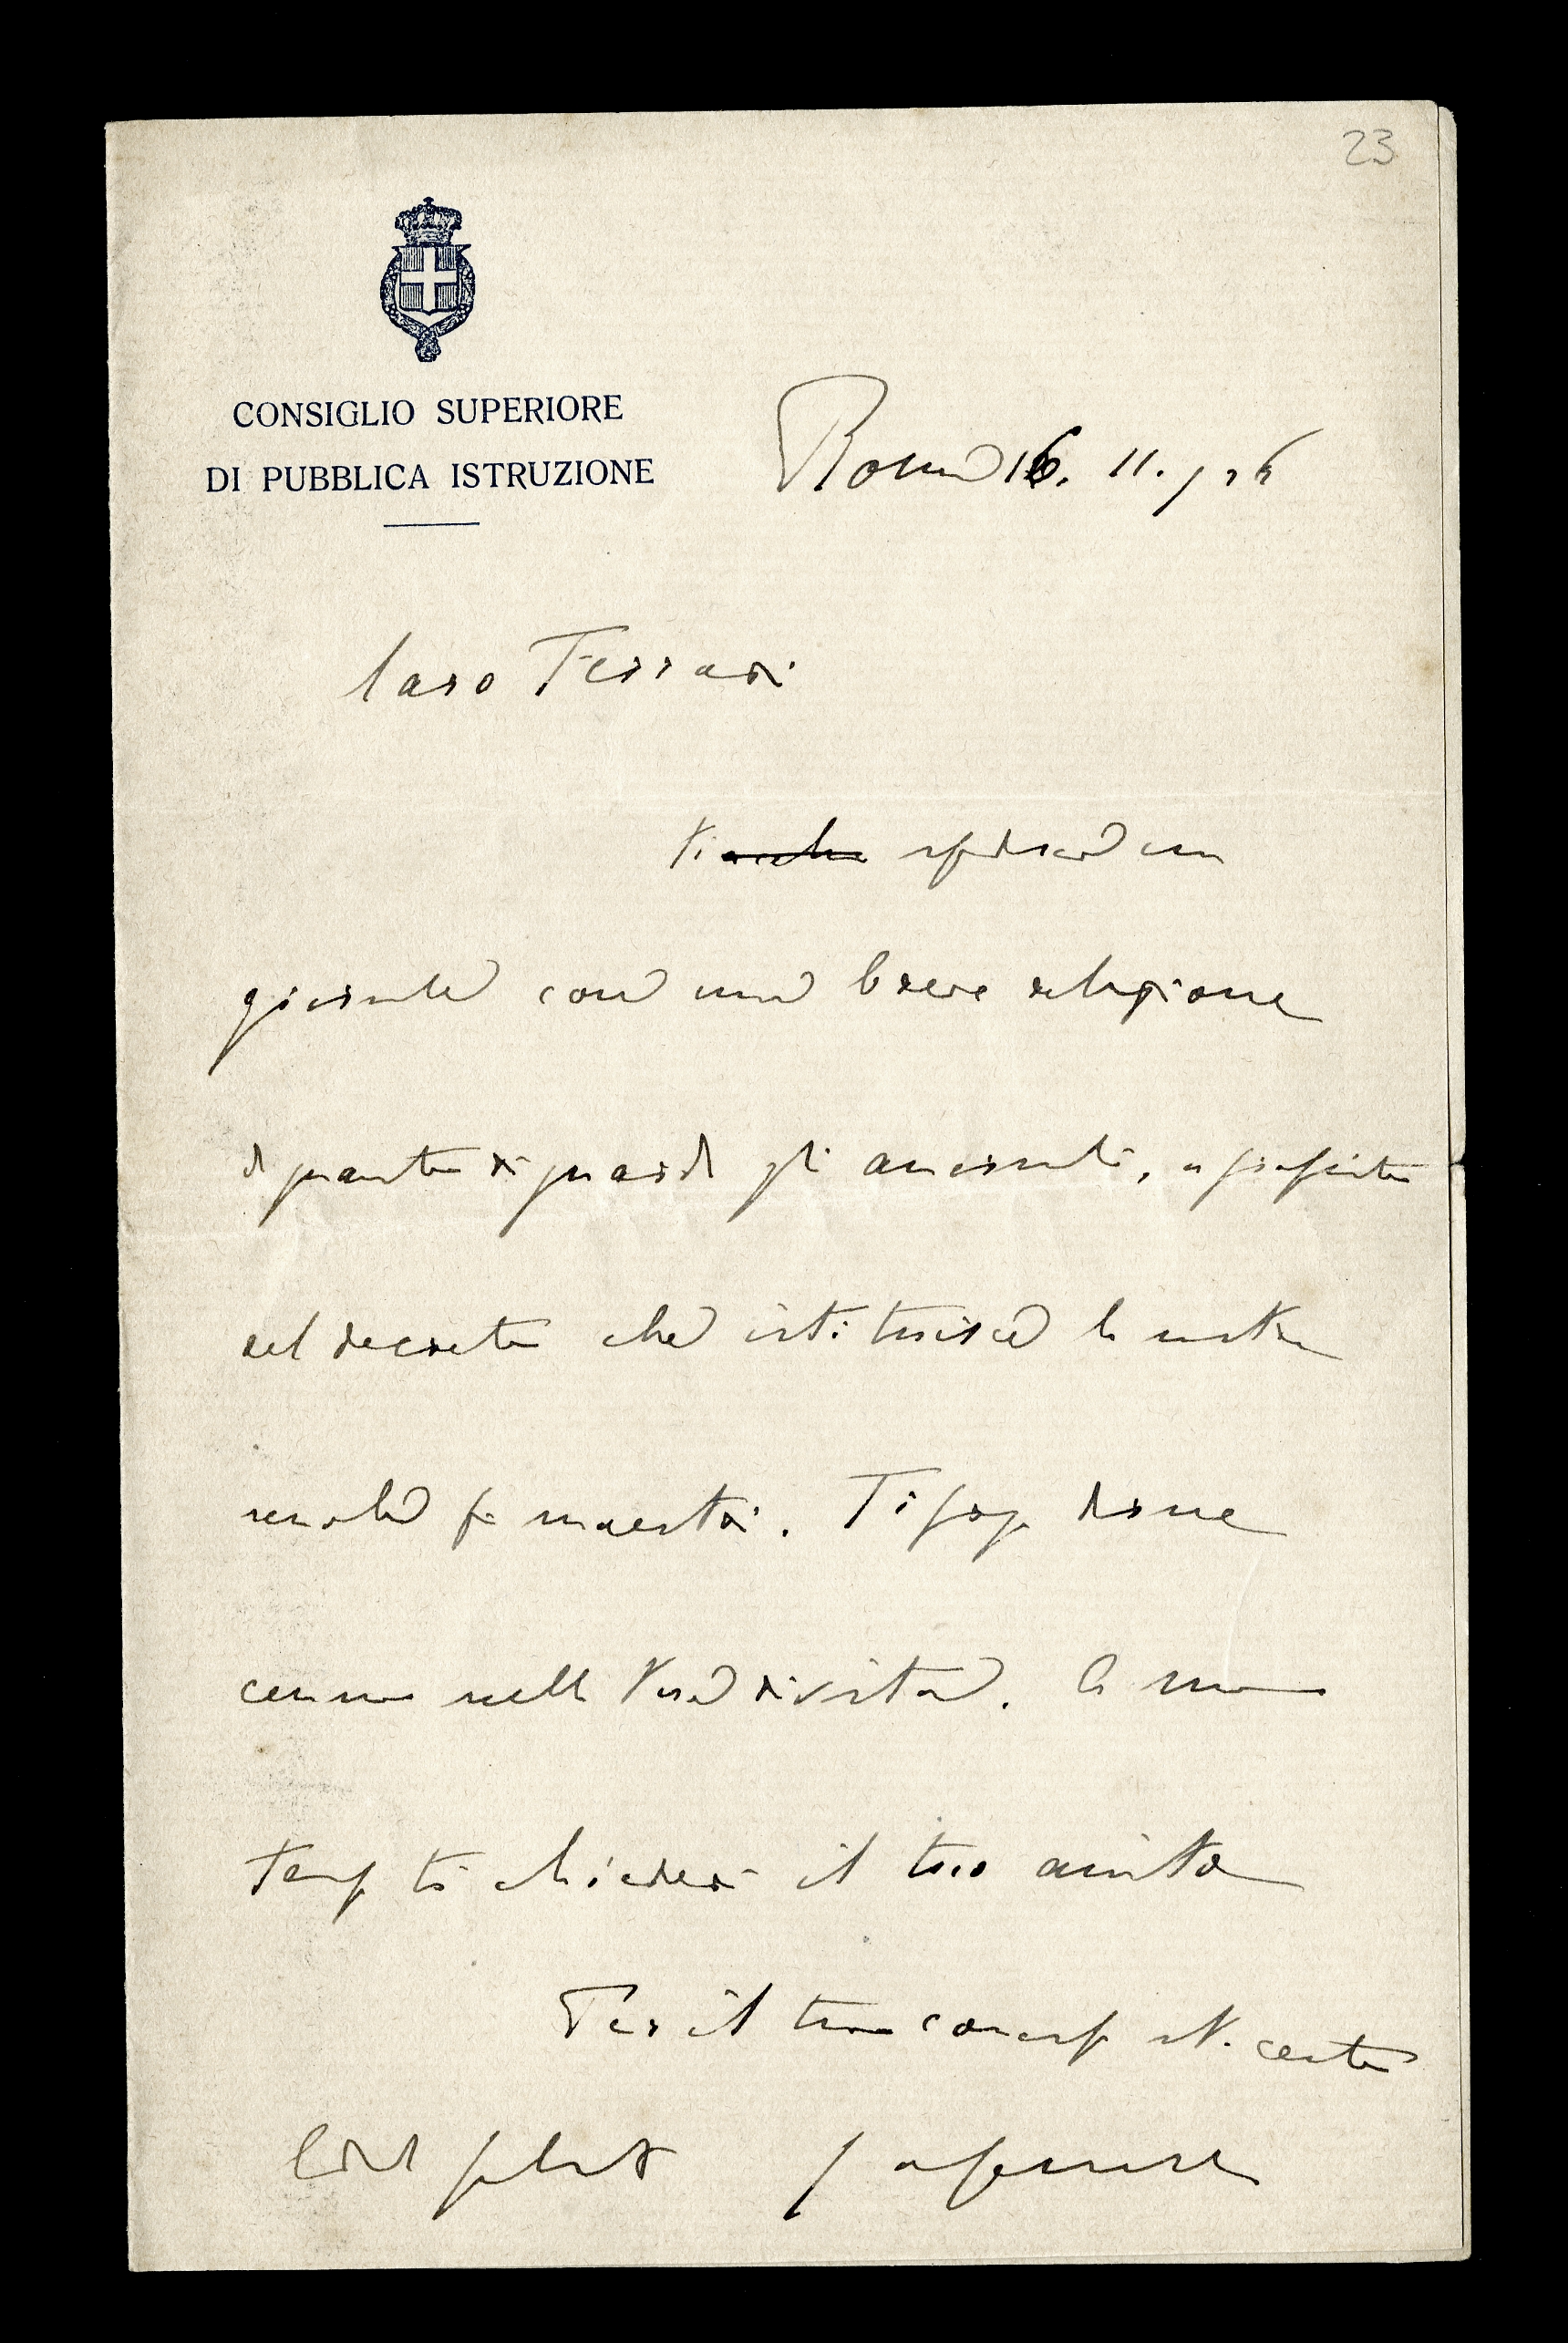 23
CONSIGLIO SUPERIORE
DI PUBBLICA ISTRUZIONE
Roma 16. 11. 926
Caro Ferrari
Ti anche spedisco un
giornale con una breve relazione
di quanto riguarda gli anormali, a proposito
del decreto che istituisce la nostra
scuola per maestri. Ti prego darne
cenno nella Tua rivista. A suo
tempo ti chiederò il tuo aiuto
Per il tuo concorso